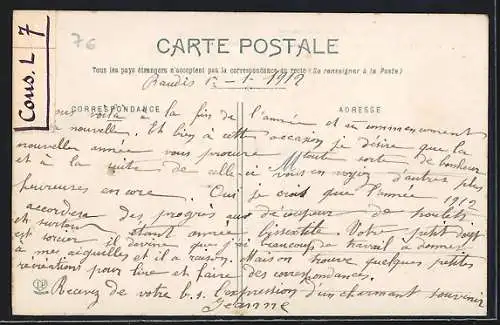 Cons. L 7
76
CARTE POSTALE
Tous les pays étrangers n'acceptent pas la correspondance au recto (Se renseigner à la Poste)
1912
CORRESPONDANCE
ADRESSE
voilà à la fin de l'année et au commencement
nouvelle. Et bien à cette occasion je désire que la
nouvelle année vous procure toute sorte de bonheur
et à la suite de celle ci vous en voyez d'autres plus
heureuses encore. Oui je crois que l'année 1912
accordera des progrès aux
et surtout étant année bissextile. Votre petit doigt
est sorcier il devine que j'ai beaucoup de travail à donner
à mes aiguilles et il a raison. Mais on trouve quelques petites
récréations pour lire et faire des correspondances.
Recevez de votre b. s. l'expression d'un charmant souvenir
Jeanne